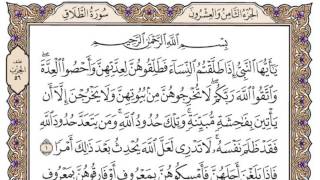 الجزء الثامن والعشرون
سورة الطلاق
بِسْمِ ٱللَّهِ ٱلرَّحْمَٰنِ ٱلرَّحِيمِ
يَٰٓأَيُّهَا ٱلنَّبِىُّ إِذَا طَلَّقْتُمُ ٱلنِّسَآءَ فَطَلِّقُوهُنَّ لِعِدَّتِهِنَّ وَأَحْصُوا۟ ٱلْعِدَّةَ ۖ
وَٱتَّقُوا۟ ٱللَّهَ رَبَّكُمْ ۖ لَا تُخْرِجُوهُنَّ مِنۢ بُيُوتِهِنَّ وَلَا يَخْرُجْنَ إِلَّآ أَن
يَأْتِينَ بِفَٰحِشَةٍ مُّبَيِّنَةٍ ۚ وَتِلْكَ حُدُودُ ٱللَّهِ ۚ وَمَن يَتَعَدَّ حُدُودَ ٱللَّهِ
فَقَدْ ظَلَمَ نَفْسَهُۥ ۚ لَا تَدْرِى لَعَلَّ ٱللَّهَ يُحْدِثُ بَعْدَ ذَٰلِكَ أَمْرًا ١
فَإِذَا بَلَغْنَ أَجَلَهُنَّ فَأَمْسِكُوهُنَّ بِمَعْرُوفٍ أَوْ فَارِقُوهُنَّ بِمَعْرُوفٍ
الحزب
٥٦